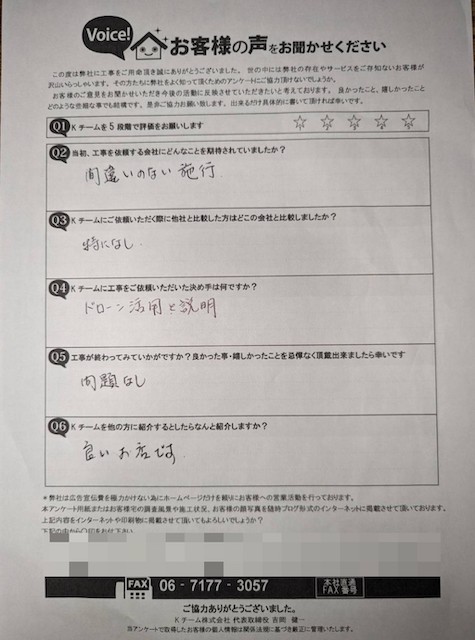 Voice! お客様の声をお聞かせください
この度は弊社に工事をご用命頂き誠にありがとうございました。世の中には弊社の存在やサービスをご存知ないお客様が
沢山いらっしゃいます。その方たちに弊社をよく知って頂くためのアンケートにご協力頂けないでしょうか。
お客様のご意見をお聞かせいただき今後の活動に反映させていただきたいと考えております。良かったこと、嬉しかったこと
どのような些細な事でも結構です。是非ご協力お願い致します。出来るだけ具体的に書いて頂ければ幸いです。
Q1 Kチームを5段階で評価をお願いします ☆ ☆ ☆ ☆ ☆
Q2 当初、工事を依頼する会社にどんなことを期待されていましたか?
間違いのない施行
Q3 Kチームにご依頼いただく際に他社と比較した方はどこの会社と比較しましたか?
特になし.
Q4 Kチームに工事をご依頼いただいた決め手は何ですか?
ドローン活用と説明
Q5 工事が終わってみていかがですか?良かった事・嬉しかったことを忌憚なく頂戴出来ましたら幸いです
問題なし
Q6 Kチームを他の方に紹介するとしたらなんと紹介しますか?
良いお店です.
*弊社は広告宣伝費を極力かけない為にホームページだけを頼りにお客様への営業活動を行っております。
本アンケート用紙またはお客様宅の調査風景や施工状況、お客様の顔写真を随時ブログ形式のインターネットに掲載させて頂いております。
上記内容をインターネットや印刷物に掲載させて頂いてもよろしいでしょうか?
FAX 06-7177-3057 本社直通 FAX番号
ご協力ありがとうございました。
Kチーム株式会社 代表取締役 吉岡 健一
当アンケートで取得したお客様の個人情報は関係法規に基づき厳正に管理いたします。